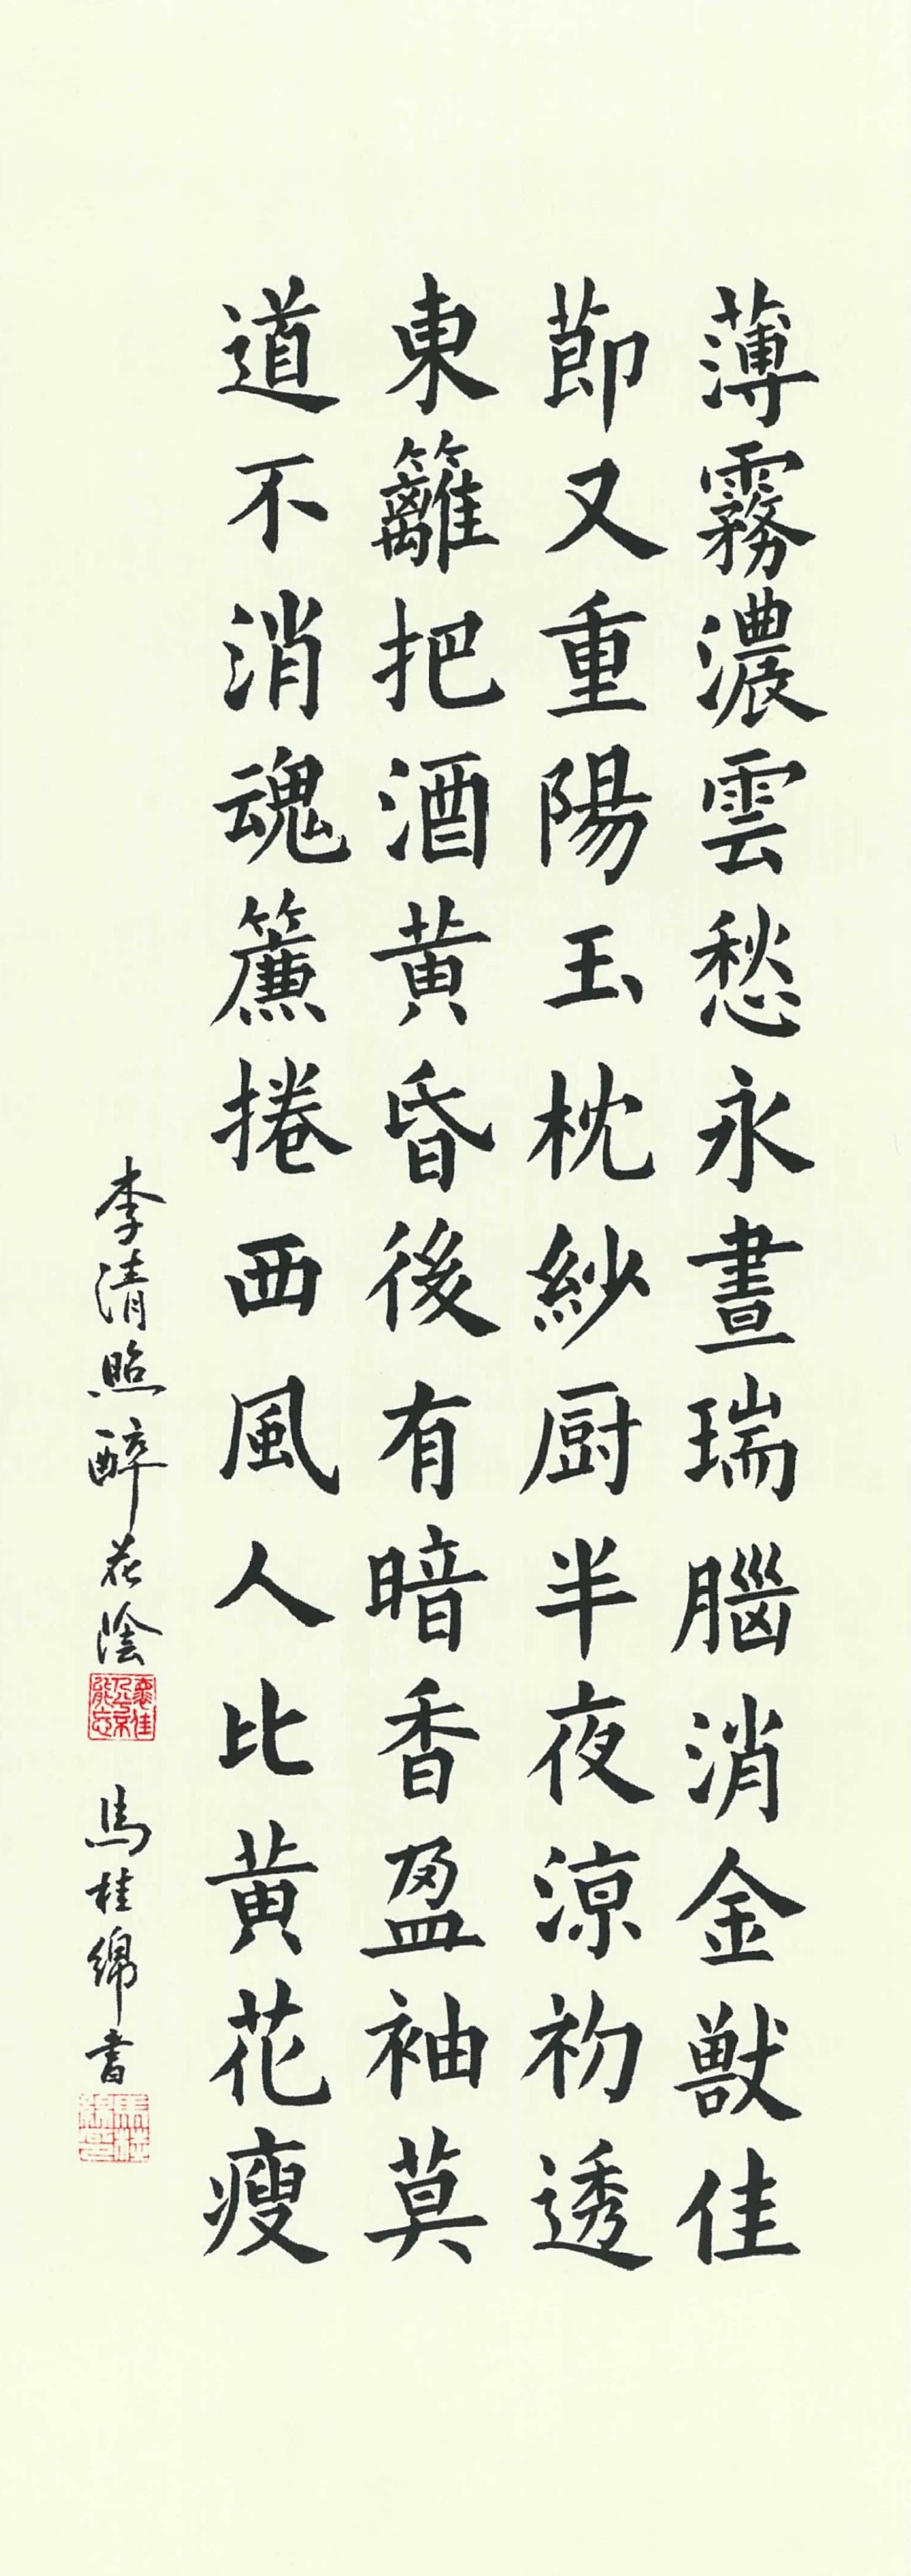 薄霧濃雲愁永晝瑞腦消金獸佳
節又重陽玉枕紗厨半夜涼初透
東籬把酒黃昏後有暗香盈袖莫
道不消魂簾捲西風人比黃花瘦
李清照醉花陰
馬桂綿書